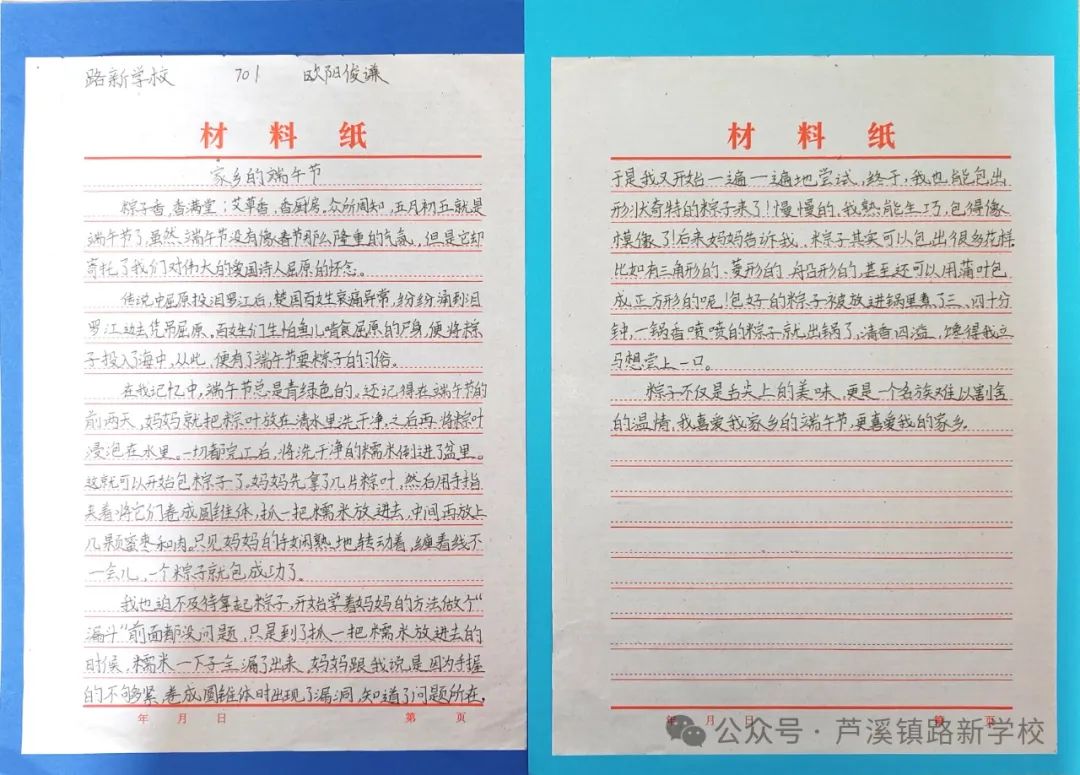 路新学校 701 欧阳俊谦
材料纸
家乡的端午节
粽子香,香满堂;艾草香,香厨房,众所周知,五月初五就是
端午节了,虽然端午节没有像春节那么隆重的气氛,但是它却
寄托了我们对伟大的爱国诗人屈原的怀念。
传说中屈原投汨罗江后,楚国百姓哀痛异常,纷纷涌到汨
罗江边去凭吊屈原。百姓们生怕鱼儿啃食屈原的尸身,便将粽
子投入了海中,从此,便有了端午节要粽子的习俗。
在我记忆中,端午节总是青绿色的。还记得在端午节的
前两天,妈妈就把粽叶放在清水里洗干净,之后再将粽叶
浸泡在水里。一切都完工后,将洗干净的糯米倒进了盆里。
这就可以开始包粽子了。妈妈先拿了几片粽叶,然后用手指
夹着将它们卷成圆锥体,抓一把糯米放进去,中间再放上
几颗蜜枣和肉。只见妈妈的手娴熟地转动着,缠着线不
一会儿,一个粽子就包成功了。
我也迫不及待拿起粽子,开始学着妈妈的方法做个“
漏斗”前面都没问题,只是到了抓一把糯米放进去的
时候,糯米一下子全漏了出来,妈妈跟我说,是因为手握
的不够紧,卷成圆锥体时出现了漏洞,知道了问题所在,
年 月 日 第 页
材料纸
于是我又开始一遍一遍地尝试,终于,我也能包出
形状奇特的粽子来了!慢慢的,我熟能生巧,包得像
模像了!后来妈妈告诉我,粽子其实可以包出很多花样
比如有三角形的、菱形的、舟凸形的,甚至还可以用蒲叶包
成正方形的呢!包好的粽子被放进锅里煮了三、四十分
钟,一锅香喷喷的粽子就出锅了,清香四溢,馋得我立
马想尝上一口。
粽子不仅是舌尖上的美味,更是一个名族难以割舍
的温情,我喜爱我家乡的端午节,更喜爱我的家乡。
年 月 日 第 页
公众号·芦溪镇路新学校